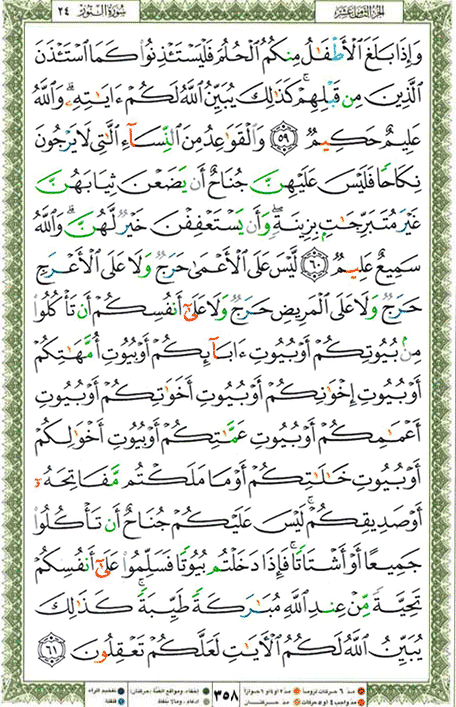 الجزء الثامن عشر ٢٤ سورة النور
وَإِذَا بَلَغَ الْأَطْفَٰلُ مِنكُمُ الْحُلُمَ فَلْيَسْتَـْٔذِنُوا۟ كَمَا اسْتَـْٔذَنَ
الَّذِينَ مِن قَبْلِهِمْ ۚ كَذَٰلِكَ يُبَيِّنُ اللَّهُ لَكُمْ ءَايَٰتِهِۦ ۗ وَاللَّهُ
عَلِيمٌ حَكِيمٌ ٥٩ وَالْقَوَٰعِدُ مِنَ النِّسَآءِ الَّٰتِى لَا يَرْجُونَ
نِكَاحًا فَلَيْسَ عَلَيْهِنَّ جُنَاحٌ أَن يَضَعْنَ ثِيَابَهُنَّ
غَيْرَ مُتَبَرِّجَٰتٍۭ بِزِينَةٍ ۖ وَأَن يَسْتَعْفِفْنَ خَيْرٌ لَّهُنَّ ۗ وَاللَّهُ
سَمِيعٌ عَلِيمٌ ٦٠ لَّيْسَ عَلَى الْأَعْمَىٰ حَرَجٌ وَلَا عَلَى الْأَعْرَجِ
حَرَجٌ وَلَا عَلَى الْمَرِيضِ حَرَجٌ وَلَا عَلَىٰٓ أَنفُسِكُمْ أَن تَأْكُلُوا۟
مِنۢ بُيُوتِكُمْ أَوْ بُيُوتِ ءَابَآئِكُمْ أَوْ بُيُوتِ أُمَّهَٰتِكُمْ
أَوْ بُيُوتِ إِخْوَٰنِكُمْ أَوْ بُيُوتِ أَخَوَٰتِكُمْ أَوْ بُيُوتِ
أَعْمَٰمِكُمْ أَوْ بُيُوتِ عَمَّٰتِكُمْ أَوْ بُيُوتِ أَخْوَٰلِكُمْ
أَوْ بُيُوتِ خَٰلَٰتِكُمْ أَوْ مَا مَلَكْتُم مَّفَاتِحَهُۥٓ
أَوْ صَدِيقِكُمْ ۚ لَيْسَ عَلَيْكُمْ جُنَاحٌ أَن تَأْكُلُوا۟
جَمِيعًا أَوْ أَشْتَاتًا ۚ فَإِذَا دَخَلْتُم بُيُوتًا فَسَلِّمُوا۟ عَلَىٰٓ أَنفُسِكُمْ
تَحِيَّةً مِّنْ عِندِ اللَّهِ مُبَٰرَكَةً طَيِّبَةً ۚ كَذَٰلِكَ
يُبَيِّنُ اللَّهُ لَكُمُ الْءَايَٰتِ لَعَلَّكُمْ تَعْقِلُونَ ٦١
٣٥٨